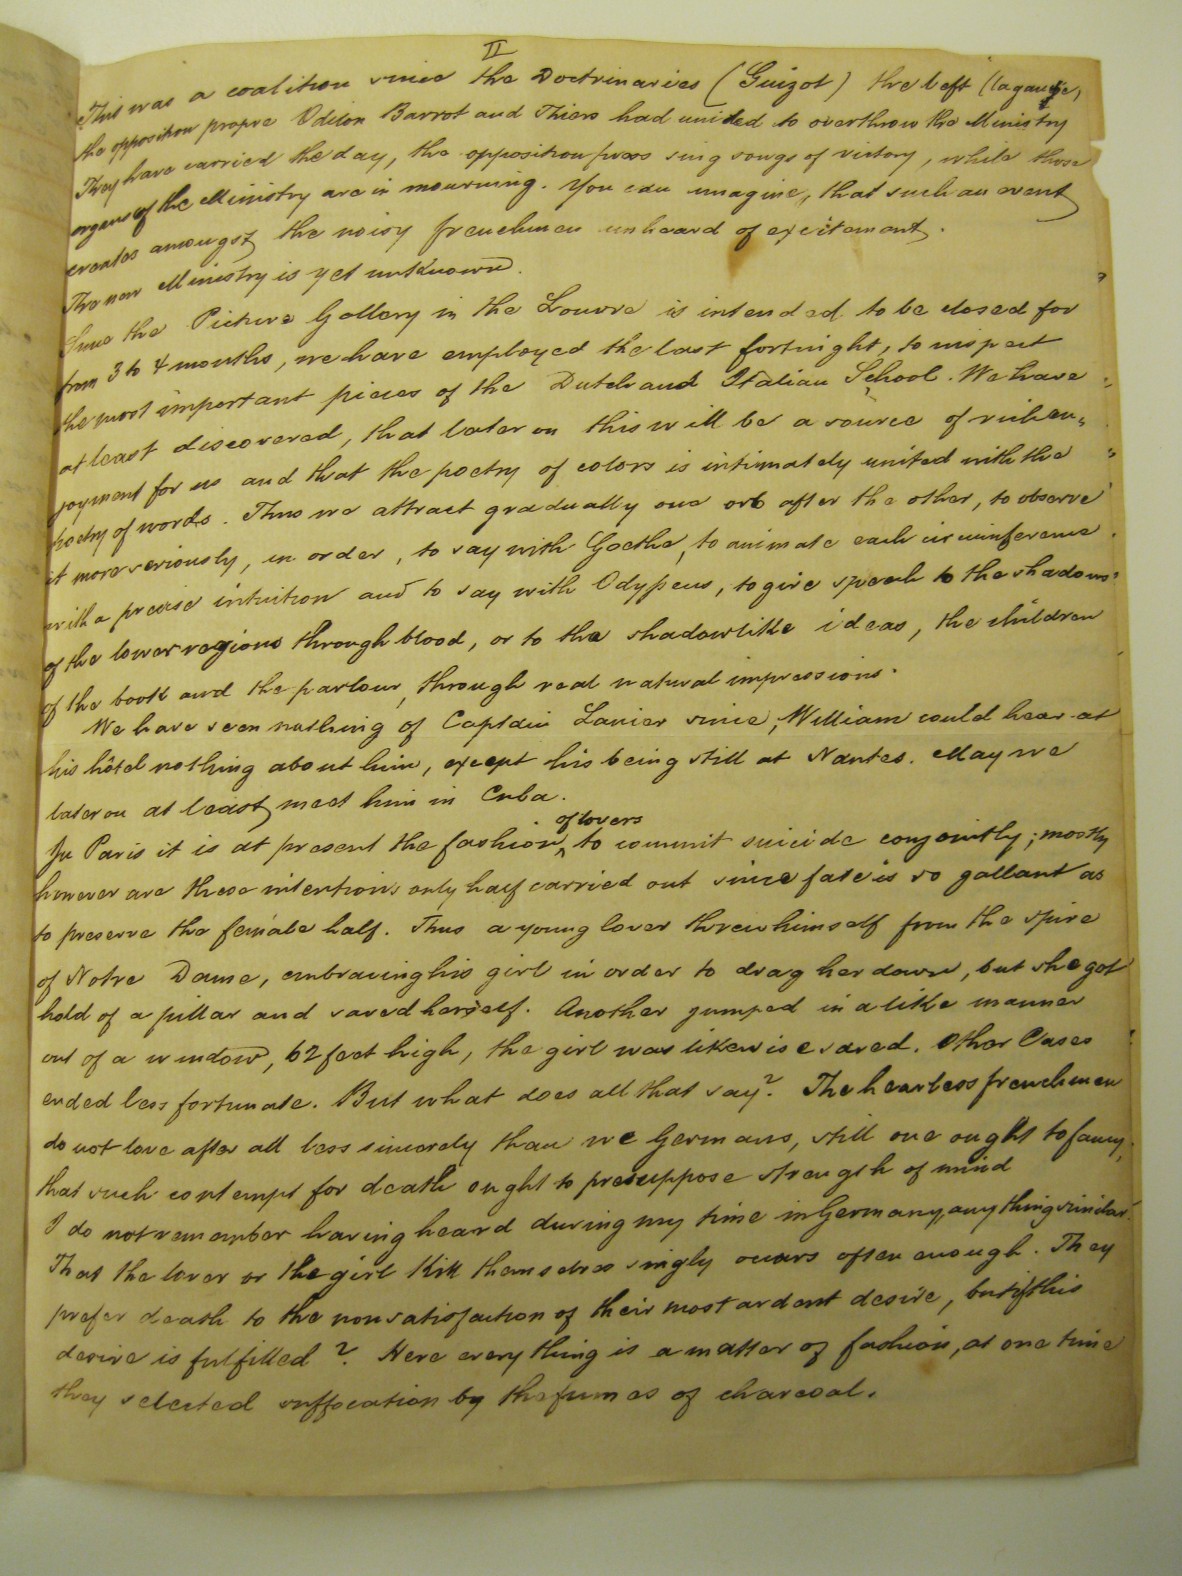 II
This was a coalition since the Doctrinaries (Guizot) the left (la gauche)
the opposition propre Odilon Barrot and Thiers had united to overthrow the Ministry
They have carried the day, the opposition press sing songs of victory, while those
organs of the Ministry are in mourning. You can imagine, that such an event
creates amongst the noisy frenchmen unheard of excitement.
The new Ministry is yet unknown.
Since the Picture Gallery in the Louvre is intended to be closed for
from 3 to 4 months, we have employed the last fortnight, to inspect
the most important pieces of the Dutch and Italian School. We have
at least discovered, that later on this will be a source of rich en„
joyment for us and that the poetry of colors is intimately united with the
poetry of words. Thus we attract gradually one orb after the other, to observe
it more seriously, in order, to say with Goethe, to animate each circumference
with a precise intuition and to say with Odysseus, to give speech to the shadows
of the lower regions through blood, or to the shadowlike ideas, the children
of the book and the parlour, through real natural impressions.
We have seen nothing of Captain Lanier since, William could hear at
his hôtel nothing about him, except his being still at Nantes. May we
later on at least meet him in Cuba.
In Paris it is at present the fashion of lovers to commit suicide conjointly; mostly
however are these intentions only half carried out since fate is so gallant as
to preserve the female half. Thus a young lover threw himself from the spire
of Notre Dame, embracing his girl in order to drag her down, but she got
hold of a pillar and saved herself. Another jumped in a like manner
out of a window, 62 feet high, the girl was likewise saved. Other Cases
ended less fortunate. But what does all that say? The heartless frenchmen
do not love after all less sincerely than we Germans, still one ought to fancy,
that such contempt for death ought to presuppose strength of mind
I do not remember having heard during my time in Germany, any thing similar.
That the lover or the girl kill themselves singly occurs often enough. They
prefer death to the non satisfaction of their most ardent desire, but if this
desire is fulfilled? Here every thing is a matter of fashion, at one time
they selected suffocation by the fumes of charcoal.